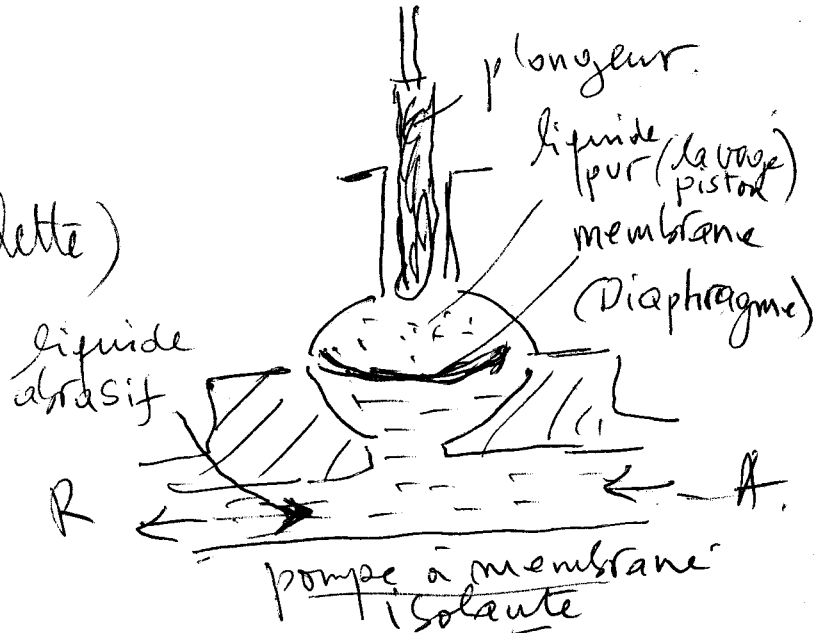 plongeur.
liquide
pur (lavage
piston)
membrane
(Diaphragme)
lette)
liquide
abrasif
R
A.
pompe à membrane
isolante